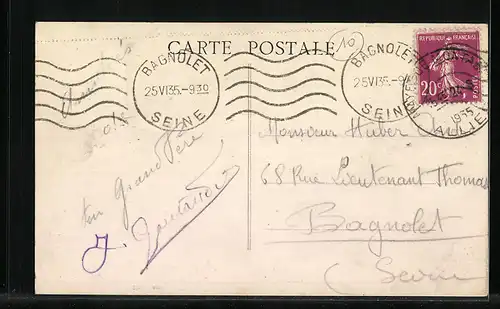 CARTE POSTALE
10
BAGNOLET
25 VI 35.-930
SEINE
BAGNOLET
25 VI 35.-9
SEINE
REPUBLIQUE FRANÇAISE
20c
1935
ton Grand Père
J.
Monsieur Huber
68 Rue Lieutenant Thomas
Bagnolet
(Seine